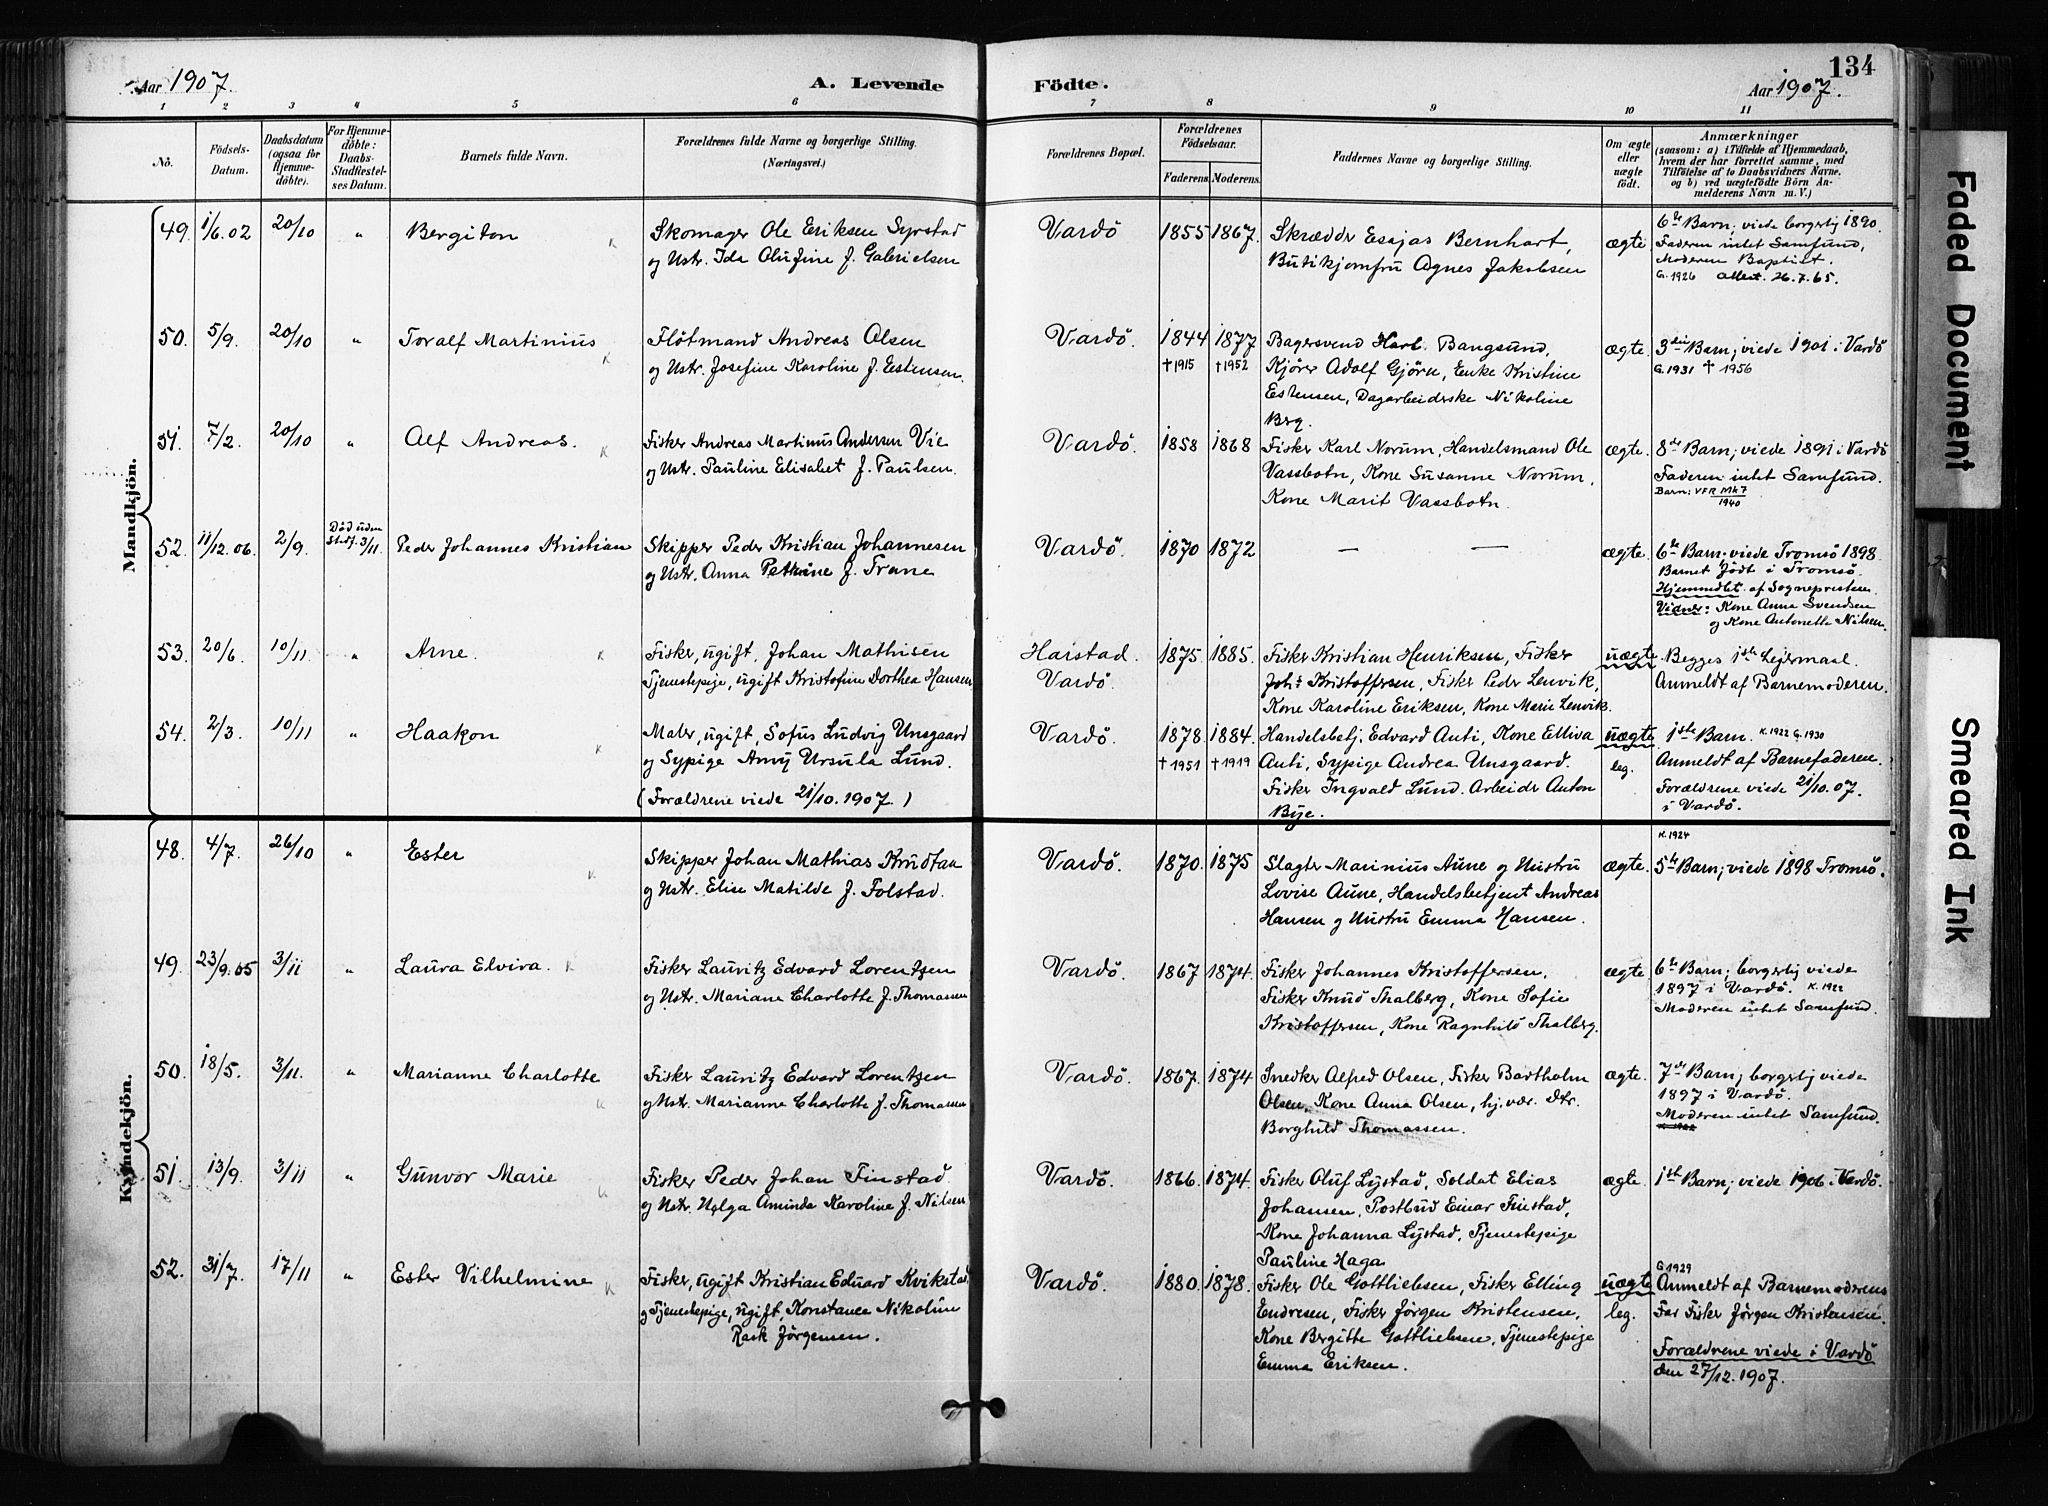 134
Aar 1907.
A. Levende
Födte.
Aar 1907.
1 2 3 4 5 6 7 8 9 10 11
No.
Födsels-
Datum.
Daabsdatum
(ogsaa for
Hjemme-
döbte).
For Hjemme-
döbte:
Daabs-
Stadfæstel-
ses Datum.
Barnets fulde Navn.
Forældrenes fulde Navne og borgerlige Stilling.
(Næringsvei.)
Forældrenes Bopæl.
Forældrenes
Födselsaar.
Faderens. Moderens.
Faddernes Navne og borgerlige Stilling.
Om ægte
eller
uægte
födt.
Anmærkninger
(saasom: a) i Tilfælde af Hjemmedaab,
hvem der har forrettet samme, med
Tilföielse af to Daabsvidners Navne,
og b) ved uægtefödte Börn An-
melderens Navn m. V.)
Mandkjön.
49. 1/6.02 20/10 " Bergiton
Skomager Ole Eriksen Syrstad
og Ustr. Ida Olufine f. Gabrielsen
Vardö 1855 1867.
Skrædder Esajas Bernhart,
Butikjomfru Agnes Jakobsen
ægte
6te Barn; viede borgerlig 1890.
Faderen intet Samfund,
Moderen Baptist.
G. 1926 Attest. 26.7.65.
50. 5/9. 20/10 " Toralf Martinius
Flötmand Andreas Olsen
og Ustr. Josefine Karoline f. Estensen.
Vardö. 1844 1877
†1915 †1952
Bagersvend Harl. Bangsund,
Kjörer Adolf Gjörn, Enke Kristine
Estensen, Dagarbeiderske Nikoline
Berg.
ægte.
3die Barn; viede 1901 i Vardö
G. 1931 † 1956
51. 7/2. 20/10 " Alf Andreas.
Fisker Andreas Martinus Andersen Vie
og Ustr. Pauline Elisabet f. Paulsen.
Vardö. 1858 1868
Fisker Karl Norum, Handelsmand Ole
Vassbotn, Kone Susanne Norum,
Kone Marit Vassbotn.
ægte.
8de Barn; viede 1891 i Vardö
Faderen intet Samfund.
Barn: VFR Mk 7
1940
52. 11/12.06. 2/9. Död uden
Stadf. 3/11. Peder Johannes Kristian
Skipper Peder Kristian Johannesen
og Ustr. Anna Petrine f. Trane
Vardö. 1870 1872
— —
ægte.
6te Barn. viede Tromsö 1898.
Barnet födt i Tromsö.
Hjemmedbt. af Sognepresten.
Vidner: Kone Anna Svendsen
og Kone Antonette Nilsen.
53. 20/6. 10/11. " Arne.
Fisker, ugift, Johan Mathisen
Tjenestepige, ugift Kristofine Dorthea Hansen
Harstad.
Vardö.
1875. 1885.
Fisker Kristian Henriksen, Fisker
Joh: Kristoffersen, Fisker Peder Lenvik,
Kone Karoline Eriksen, Kone Marie Lenvik.
uægte
Begges 1ste Lejermaal.
Anmeldt af Barnemoderen.
54. 2/3. 10/11. " Haakon
Maler, ugift, Sofus Ludvig Unsgaard
og Sypige Amy Ursula Lund.
(Forældrene viede 21/10. 1907.)
Vardö. 1878 1884.
†1951 †1919
Handelsbetj. Edvard Anti, Kone Elliva
Anti, Sypige Andrea Unsgaard.
Fisker Ingvald Lund. Arbeider Anton
Bye.
uægte
leg.
1ste Barn. K. 1922 G. 1930
Anmeldt af Barnefaderen.
Forældrene viede 21/10. 07.
i Vardö.
Kvindekjön.
48. 4/7. 26/10 " Ester
Skipper Johan Mathias Knudtan
og Ustr. Elise Matilde f. Folstad.
Vardö. 1870. 1875
Slagter Marinius Aune og Hustru
Lovise Aune, Handelsbetjent Andreas
Hansen og Hustru Emma Hansen.
ægte.
K. 1924
5te Barn; viede 1898 Tromsö.
49. 23/9.05 3/11 " Laura Elvira.
Fisker Lauritz Edvard Lorentzen
og Ustr. Mariane Charlotte f. Thomassen
Vardö. 1867 1874.
Fisker Johannes Kristoffersen,
Fisker Knud Thalberg, Kone Sofie
Kristoffersen, Kone Ragnhild Thalberg.
ægte.
6te Barn; borgerlig viede
1897 i Vardö. K. 1922
Moderen intet Samfund.
50. 18/5. 3/11. " Marianne Charlotte
Fisker Lauritz Edvard Lorentzen
og Ustr. Marianne Charlotte f. Thomassen
Vardö. 1867. 1874
Snedker Alfred Olsen, Fisker Bartholm
Olsen, Kone Anna Olsen, hj. vær. Dtr.
Borghild Thomassen.
ægte.
7de Barn; borgerlig viede
1897 i Vardö.
Moderen intet Samfund.
K. 1922
51. 13/9. 3/11 " Gunvor Marie
Fisker Peder Johan Finstad.
og Ustr. Helga Aminda Karoline f. Nilsen
Vardö. 1866. 1874.
Fisker Oluf Lystad, Soldat Elias
Johansen, Postbud Einar Finstad,
Kone Johanna Lystad, Tjenestepige
Pauline Haga
ægte.
1ste Barn; viede 1906 i Vardö.
52. 31/7. 17/11 " Ester Vilhelmine
Fisker, ugift Kristian Edvard Kvikstad
og Tjenestepige, ugift, Konstance Nikoline
Rask Jörgensen.
Vardö. 1880. 1878.
Fisker Ole Gottliebsen, Fisker Elling
Endresen, Fisker Jörgen Kristensen,
Kone Bergitte Gottliebsen, Tjenestepige
Emma Eriksen.
uægte
leg.
G 1929
Anmeldt af Barnemoderens
Far Fisker Jörgen Kristensen.
Forældrene viede i Vardö
den 27/12. 1907.
Faded Document
Smeared Ink